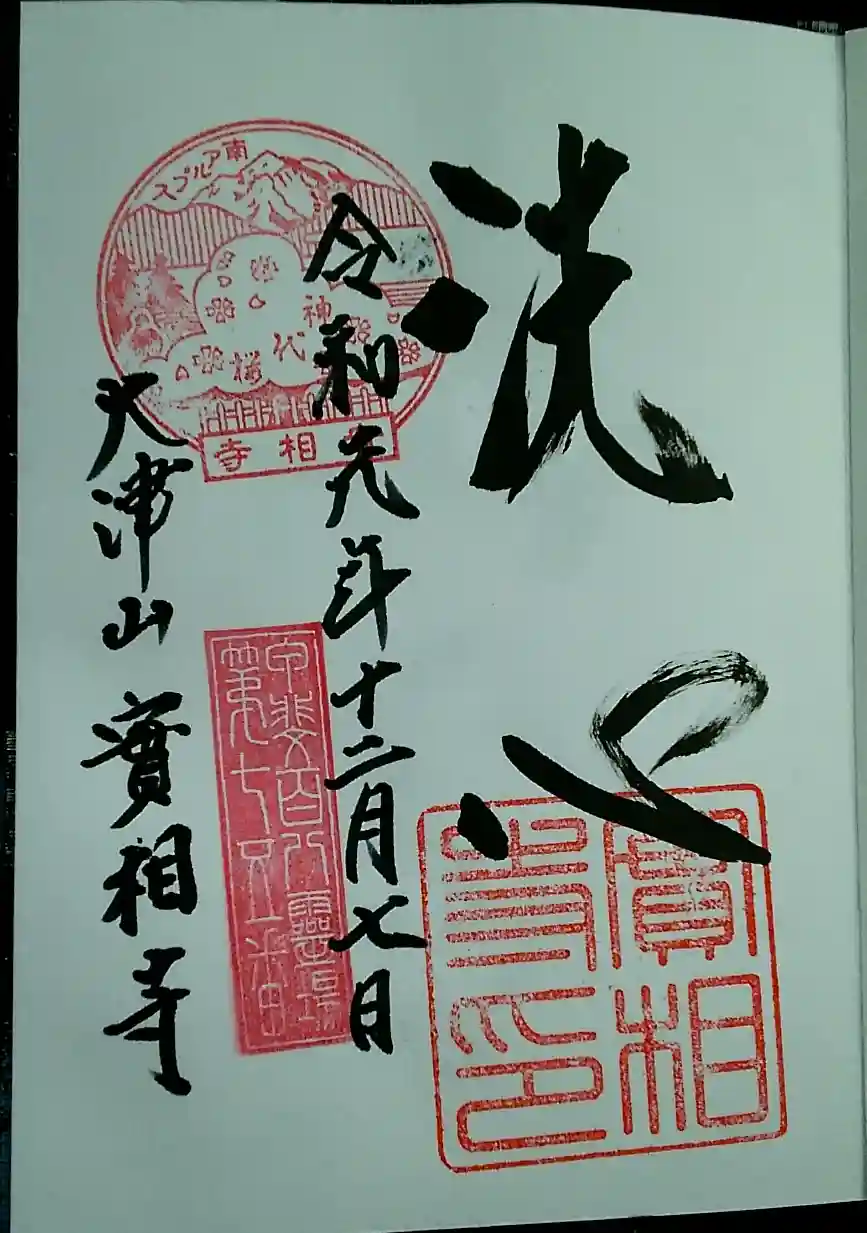 洗心
令和元年十二月七日
大津山 實相寺
南アルプス
神代桜
相寺
甲斐百八靈場
第七
實相寺印